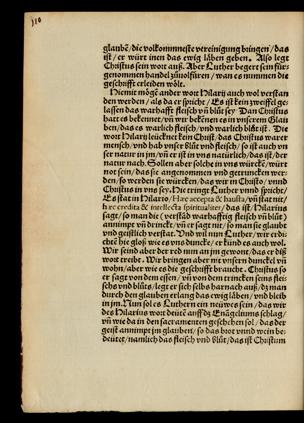 110
glaubē/die volkommneste vereinigung bringen/das
ist/er würt inen das ewig läben geben. Also legt
Christus sein wort auß. Aber Luther begert sein für-
genommen handel zůuolfüren/wan es nimmen die
geschrifft erleiden wölt.
Hiemit mögē ander wort Hilarij auch wol verstan
den werden/als da er spricht/Es ist kein zweiffel ge-
lassen das warhafft fleisch vn̄ blůt sey Dan Christus
hatt es bekennet/vn̄ wir bekēnen es in vnserem Glau
ben/das es warlich fleisch/vnd warlich blůt ist. Die
wort Hilarij leücknet kein Christ/das Christus warer
mensch/vnd hab vnser blůt vnd fleisch/so ist auch vn
ser natur in jm/vn̄ er ist in vns natürlich/das ist/der
natur nach. Sollen aber solche in vns würcken/würt
not sein/das sie angenommen vnd getruncken wer-
den/so werden sie würcken/das wir in Christo/vnnd
Christus in vns sey. Hie tringt Luther vnnd spricht/
Es stat in Hilario/Hæc accepta & hausta/vn̄ stat nit/
hæc credita & intellecta spiritualiter/das ist. Hilarius
sagt/so man die (verstād warhafftig fleisch vn̄ blůt)
annimpt vn̄ drinckt/vn̄ er sagt nit/so man sie glaubt
vnd geistlich verstat. Vnd wil nun Luther/wir erdi-
chtē hie gloß wie es vns dunck/er künd es auch wol.
Wir seind aber der red nun an jm gewont/das er diß
wort treibt. Wir bringen aber nit vnsern dunckel vn̄
wohn/aber wie es die geschrifft braucht. Christus so
er sagt von dem essen/vn̄ von dem trincken seins flei-
schs vnd blůts/legt er sich selbs harnach auß/dz man
durch den glauben erlang das ewig läben/vnd bleib
in jm. Nun sol es Luthern ein nüwes sein/das wir
des Hilarius wort deütē auff dz Euāgeliums schlag/
vn̄ wie da in den sacramenten geschehen sol/das der
geist annimpt jm glauben/so das brot vnnd wein be-
deütet/namlich das fleisch vnd blůt/das ist Christum